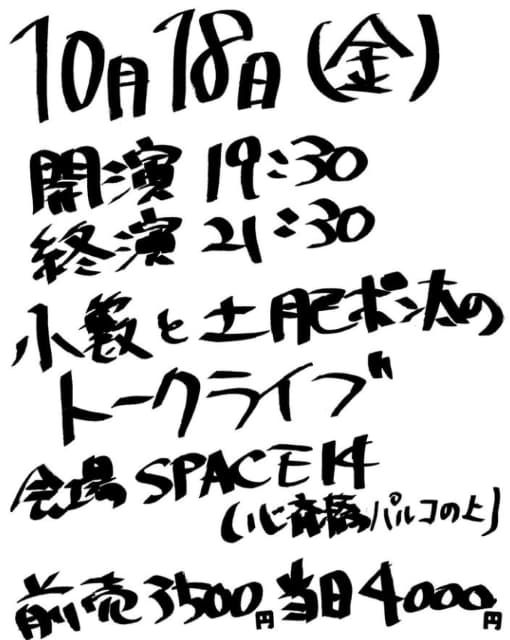 10月18日(金)
開演 19:30
終演 21:30
小籔と土肥ポン太の
トークライブ
会場 SPACE14
(心斎橋パルコの上)
前売3500円 当日4000円